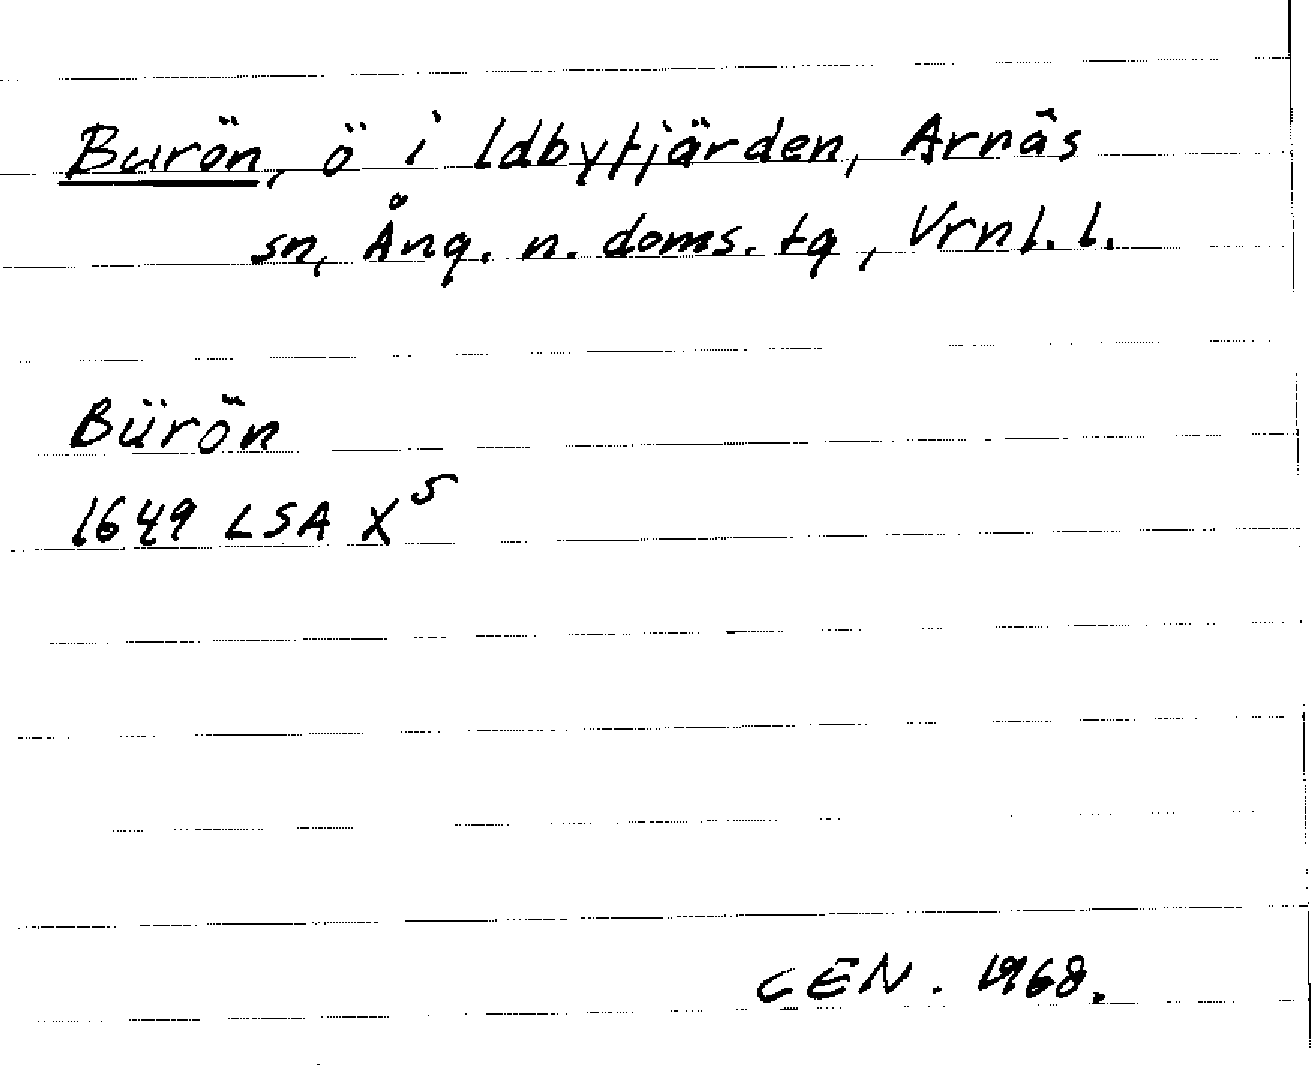 Burön, ö i Idbyfjärden, Arnäs
sn, Ång. n. doms. tg, Vrnl. l.
Bürön
1649 LSA X⁵
CEN. 1968.